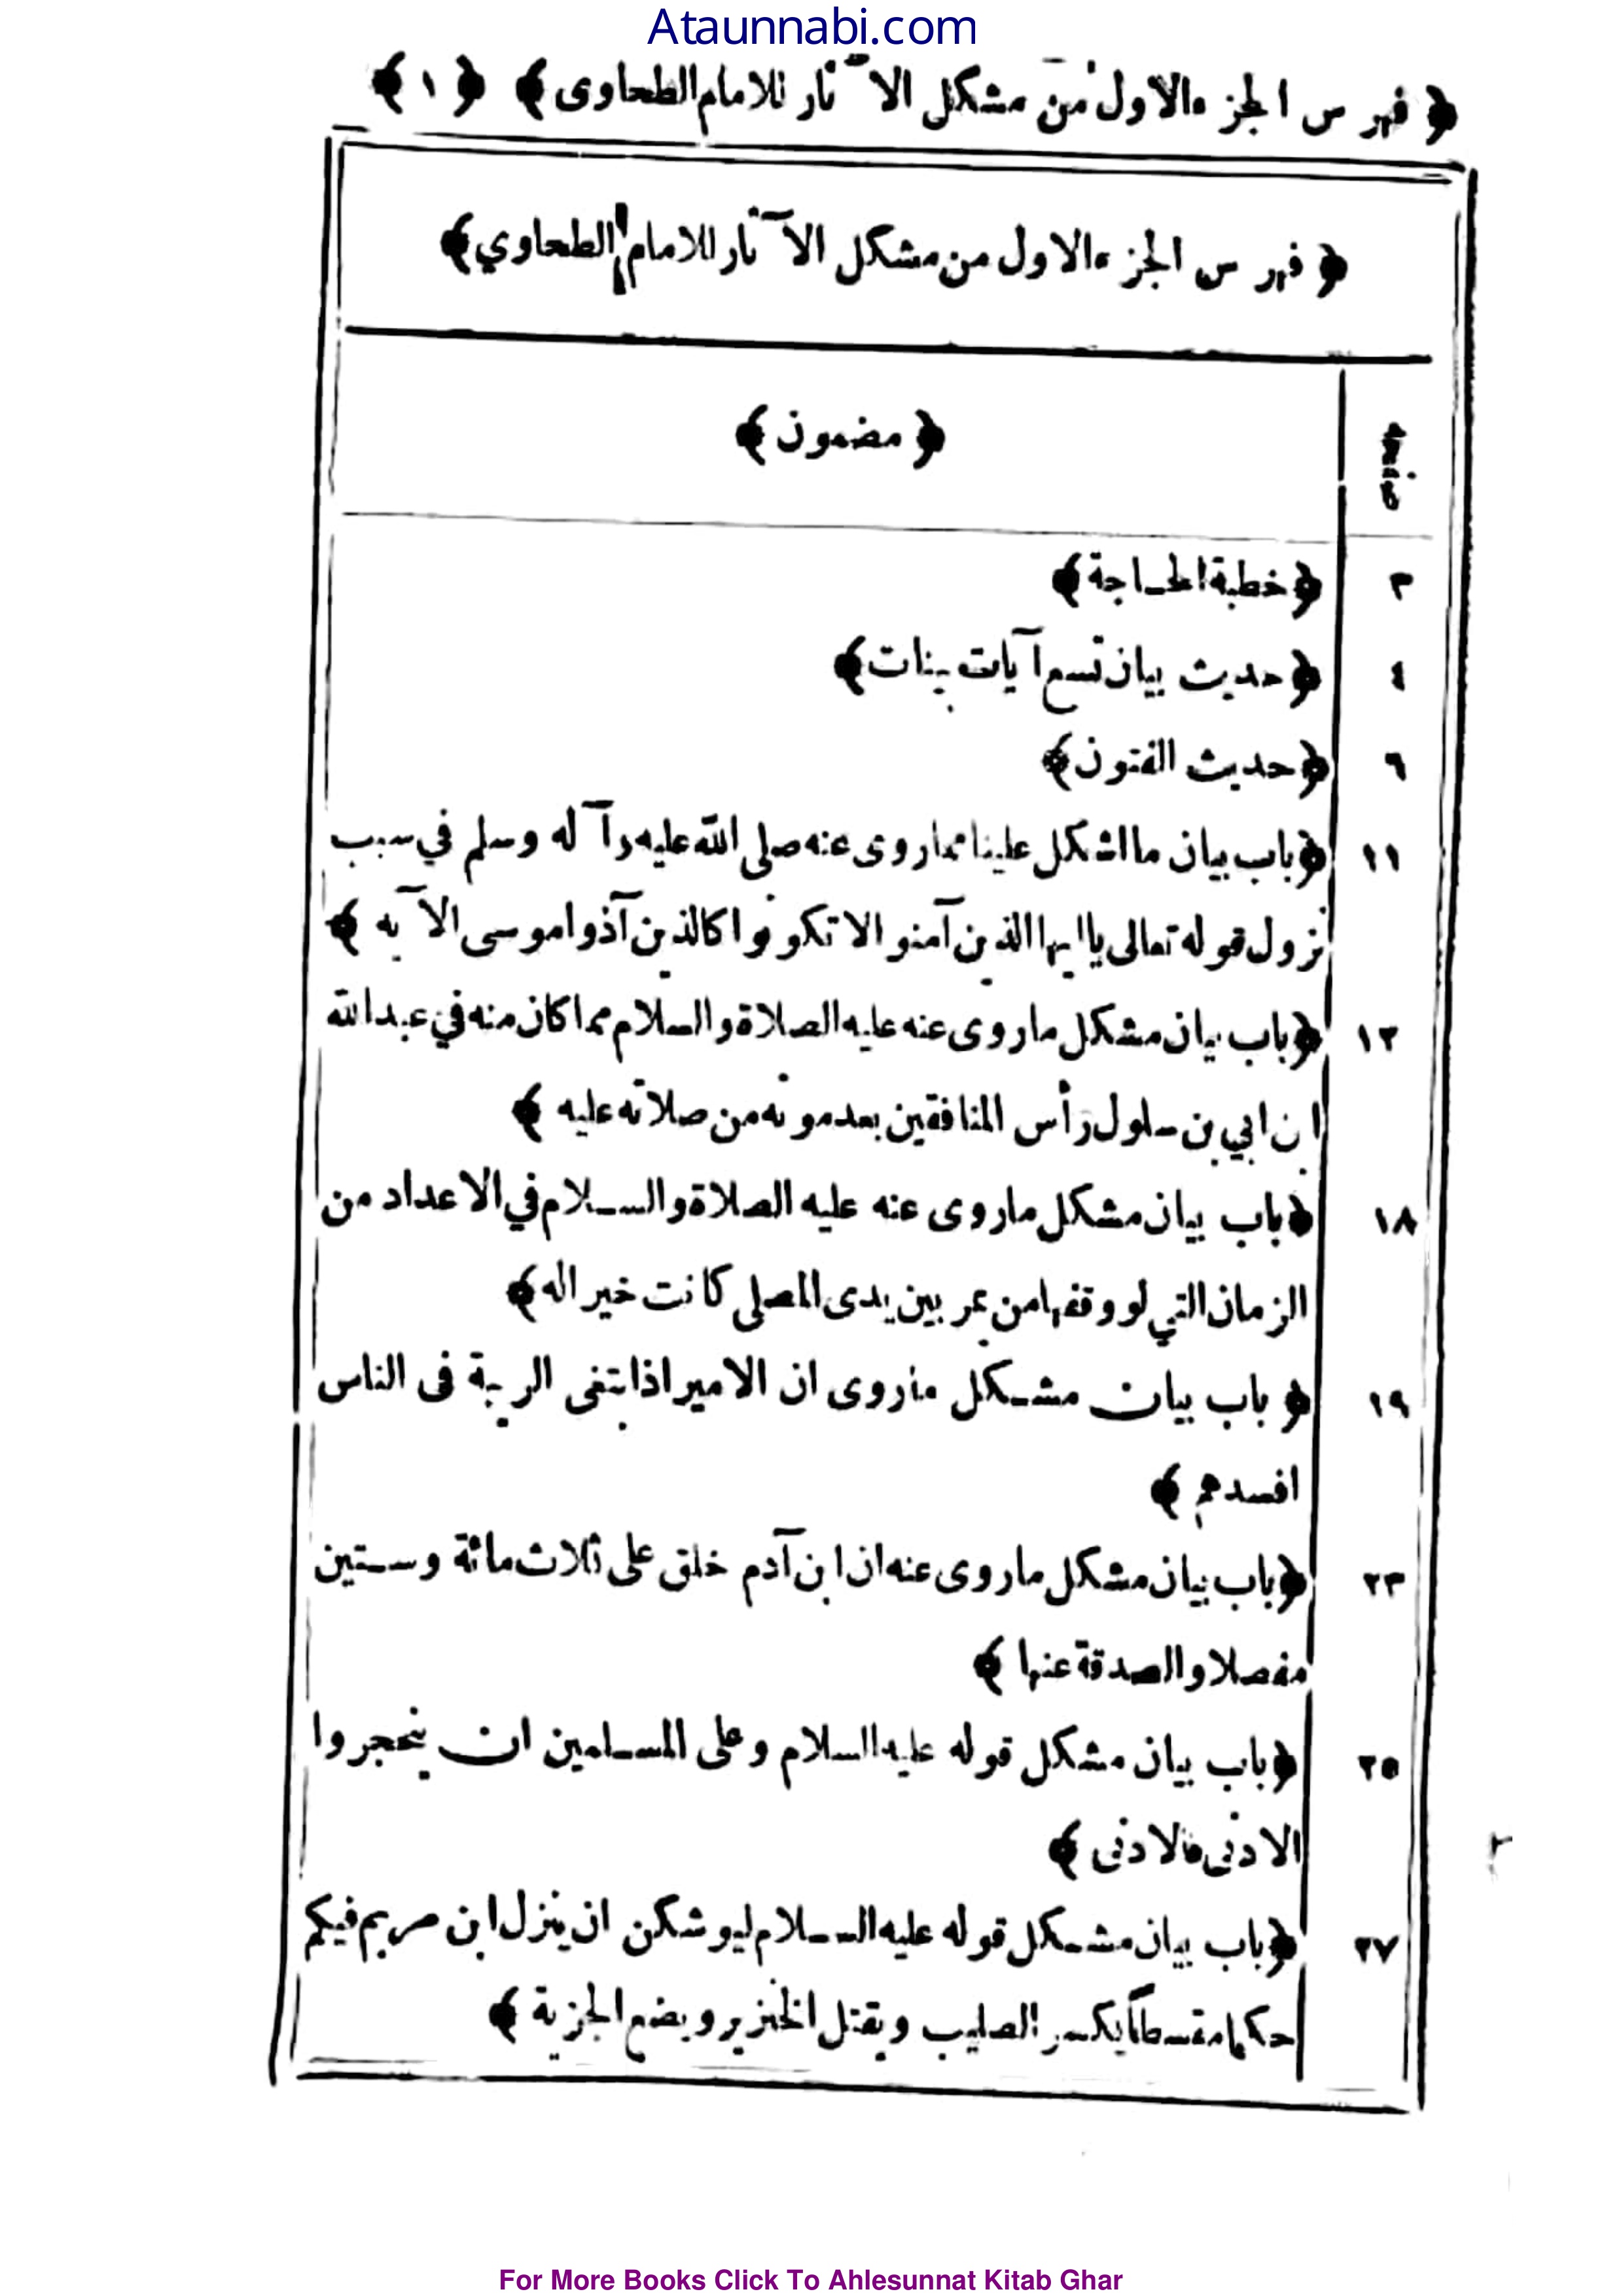 Ataunnabi.com
﴿ فهرس الجزء الاول من مشكل الآثار للامام الطحاوى ﴾ ﴿ ١ ﴾
﴿ فهرس الجزء الاول من مشكل الآثار للامام الطحاوي ﴾
صفحه ﴿ مضمون ﴾
٣ ﴿ خطبة الحاجة ﴾
٤ ﴿ حديث بيان تسع آيات بينات ﴾
٦ ﴿ حديث الفتون ﴾
١١ ﴿ باب بيان ما اشكل علينا مما روى عنه صلى الله عليه وآله وسلم في سبب
نزول قوله تعالى يا ايها الذين آمنوا لا تكونوا كالذين آذوا موسى الآيه ﴾
١٣ ﴿ باب بيان مشكل ما روى عنه عليه الصلاة والسلام مما كان منه في عبد الله
ابن ابي بن سلول رأس المنافقين بعد موته من صلاته عليه ﴾
١٨ ﴿ باب بيان مشكل ما روى عنه عليه الصلاة والسلام في الاعداد من
الزمان التي لو وقفها من يمر بين يدى المصلى كانت خيرا له ﴾
١٩ ﴿ باب بيان مشكل ما روى ان الامير اذا ابتغى الريبة فى الناس
افسدهم ﴾
٢٣ ﴿ باب بيان مشكل ما روى عنه ان ابن آدم خلق على ثلاث مائة وستين
مفصلا والصدقة عنها ﴾
٢٥ ﴿ باب بيان مشكل قوله عليه السلام وعلى المسلمين ان ينحجروا
الادنى فالادنى ﴾
٢٧ ﴿ باب بيان مشكل قوله عليه السلام ليوشكن ان ينزل ابن مريم فيكم
حكما مقسطا يكسر الصليب ويقتل الخنزير ويضع الجزية ﴾
For More Books Click To Ahlesunnat Kitab Ghar